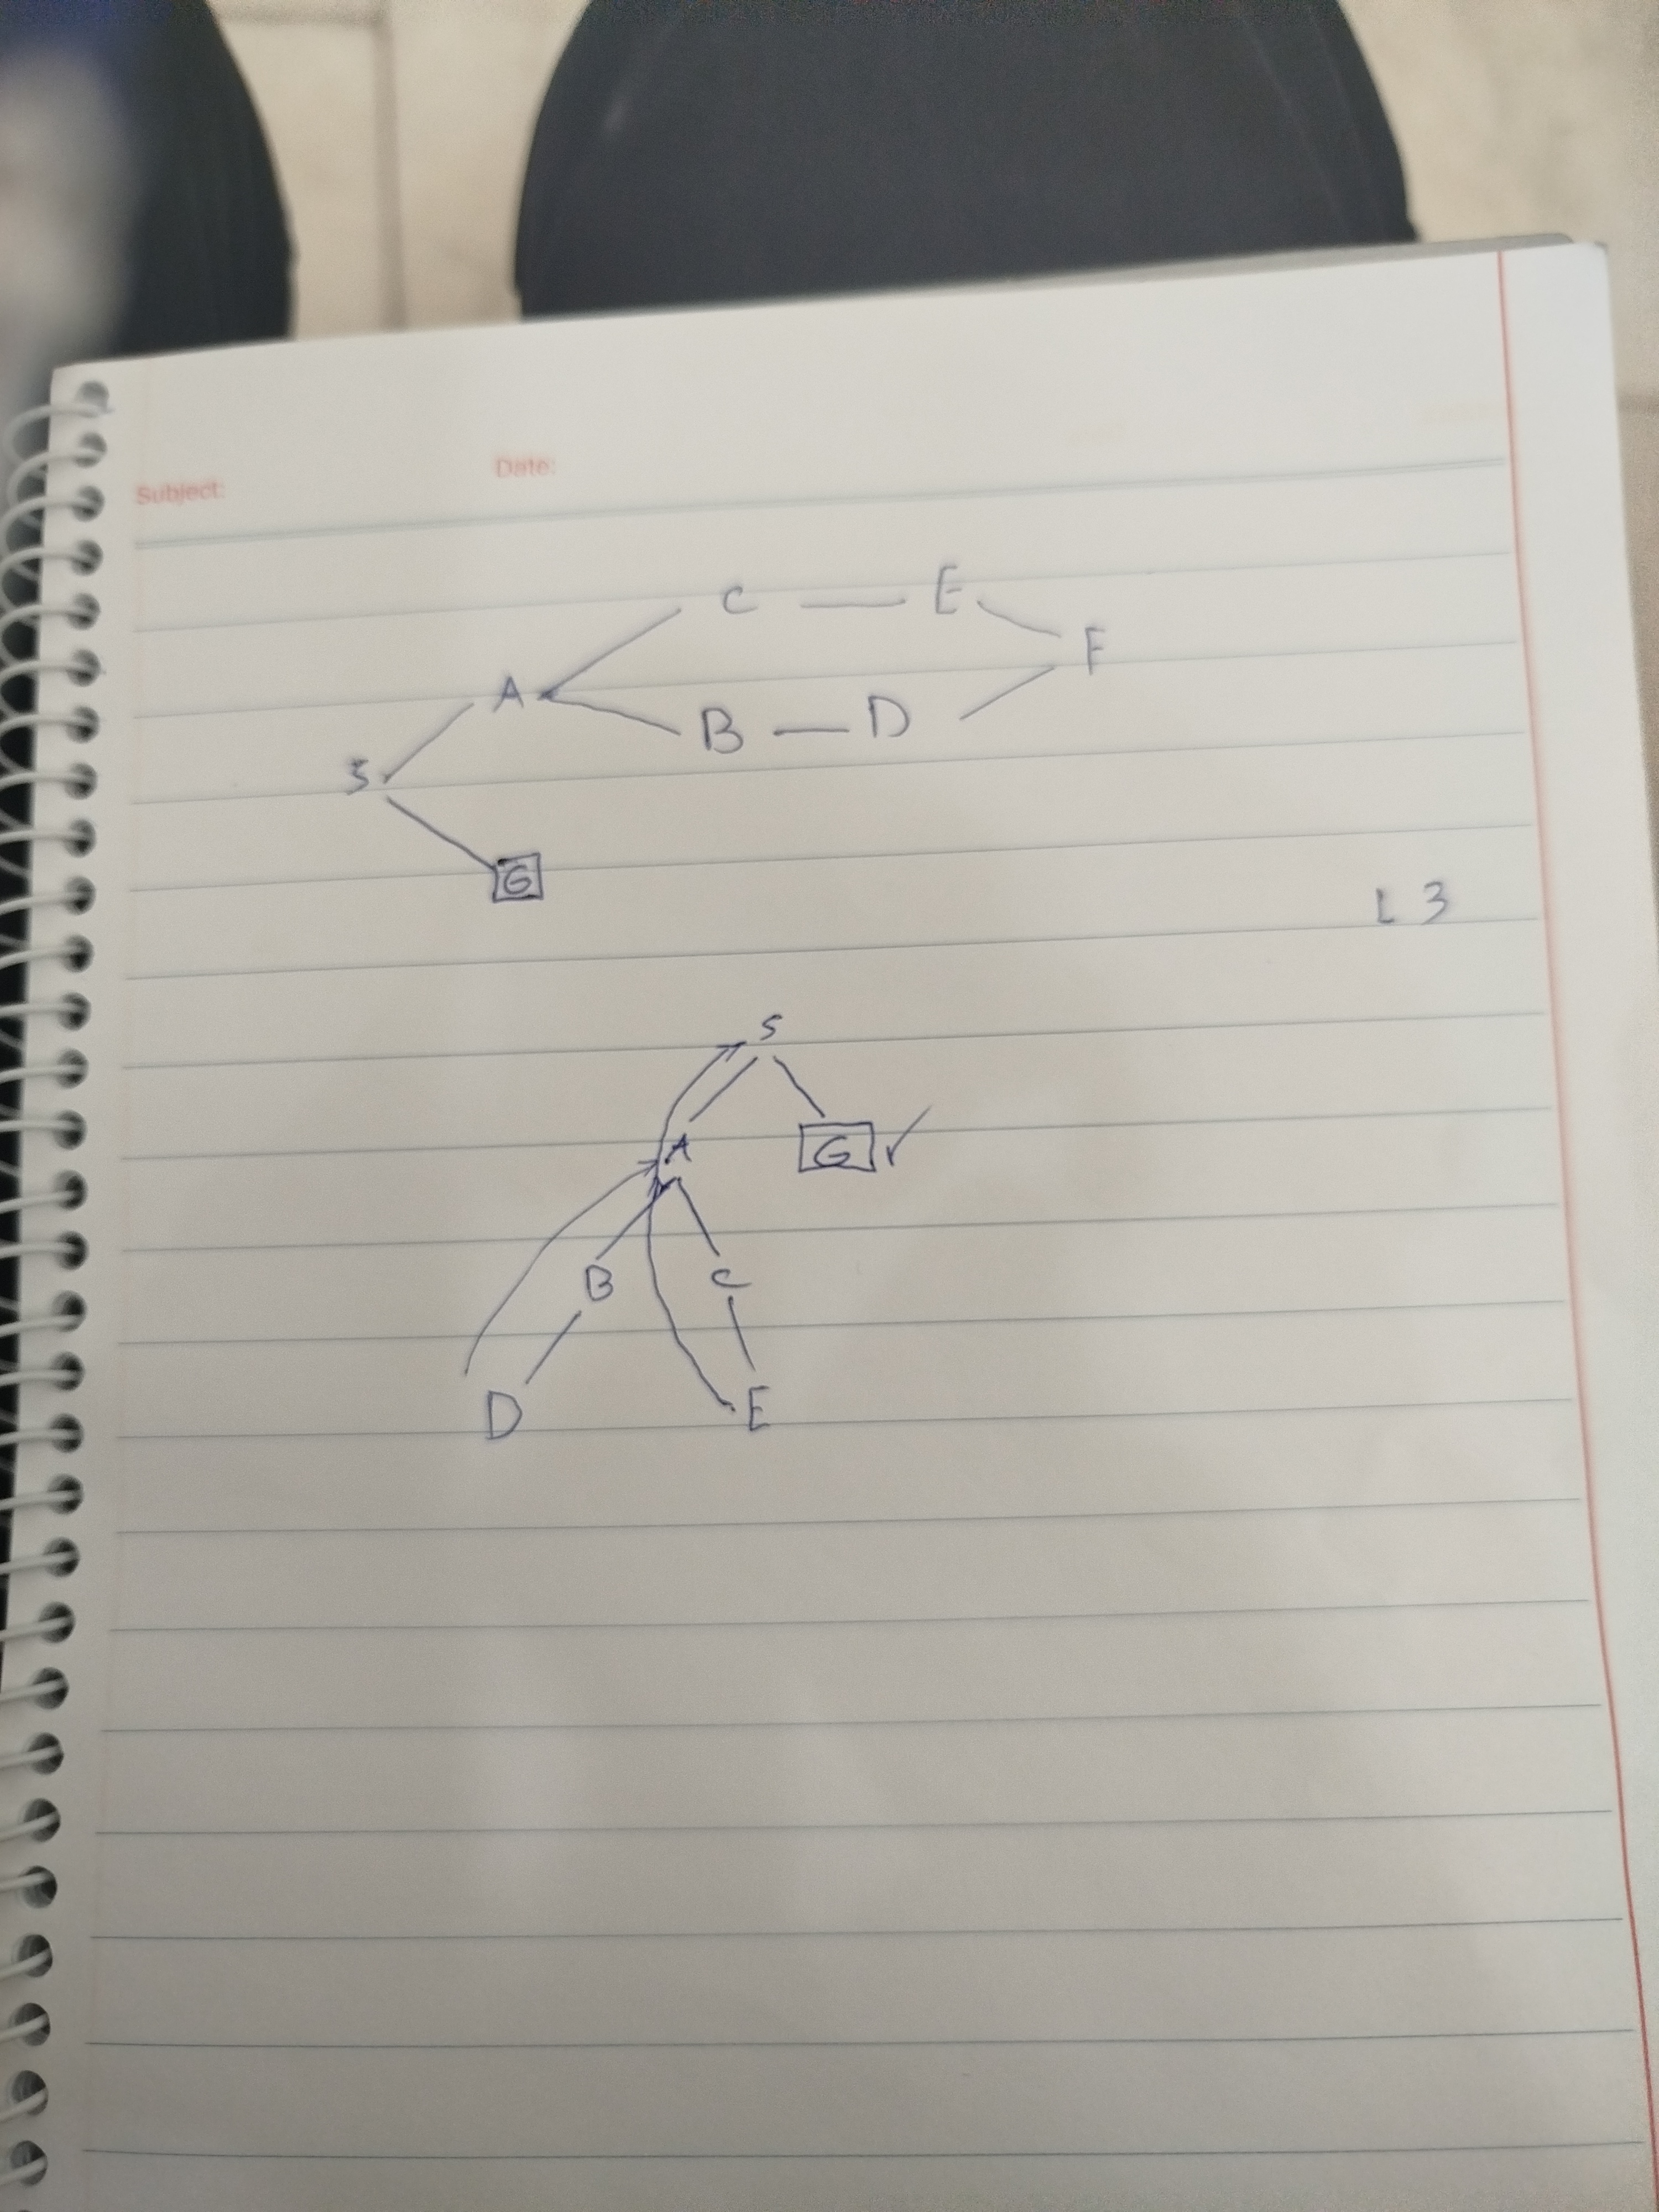 Subject: Date:
C E
F
A
B D
S
G
L 3
S
A G
B C
D E